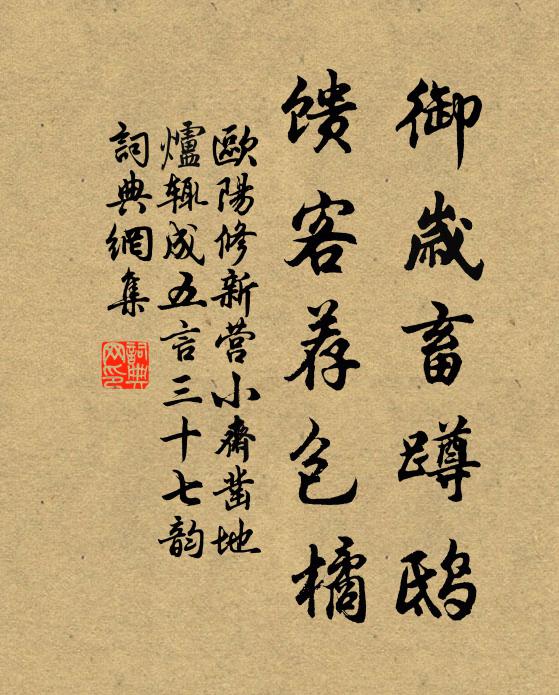 御歲畜蹲鴟
馈客荐包橘
歐陽修新营小齋凿地
爐辄成五言三十七韵
詞典網集
詞典网印